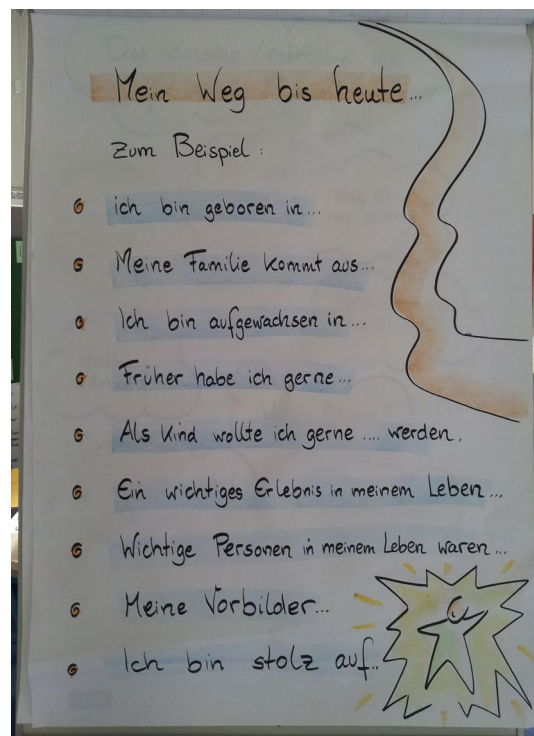 Mein Weg bis heute...
zum Beispiel:
ich bin geboren in...
Meine Familie kommt aus...
Ich bin aufgewachsen in...
Früher habe ich gerne...
Als Kind wollte ich gerne .... werden.
Ein wichtiges Erlebnis in meinem Leben...
Wichtige Personen in meinem Leben waren...
Meine Vorbilder...
Ich bin stolz auf..